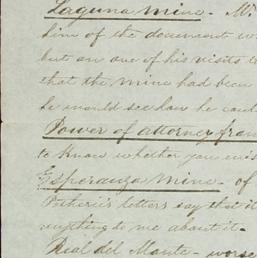 Laguna mine. M.
him of the document w
but on one of his visits t
that the mine had been
he would see how he cou
Power of attorney from
to know whether you wis
Esperanza mine. of
letters say that it
anything to me about it.
Real del Monte - worse